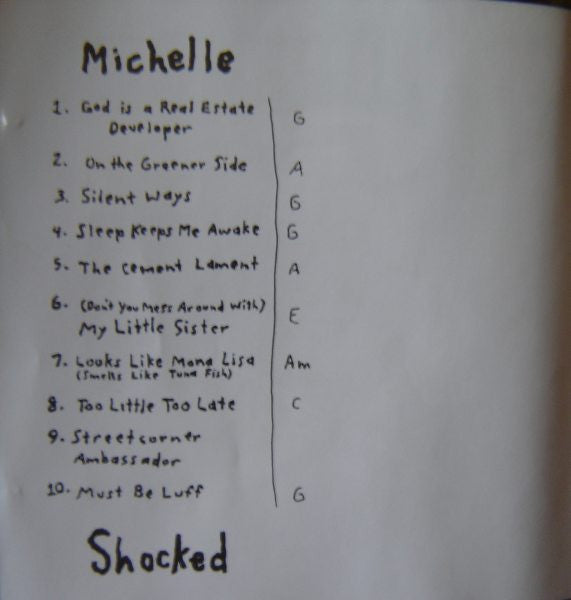 Michelle
1. God is a Real Estate G
Developer
2. On the Greener Side A
3. Silent Ways G
4. Sleep Keeps Me Awake G
5. The Cement Lament A
6. (Don't You Mess Around With) E
My Little Sister
7. Looks Like Mona Lisa Am
(Smells Like Tuna Fish)
8. Too Little Too Late C
9. Streetcorner
Ambassador
10. Must Be Luff G
Shocked